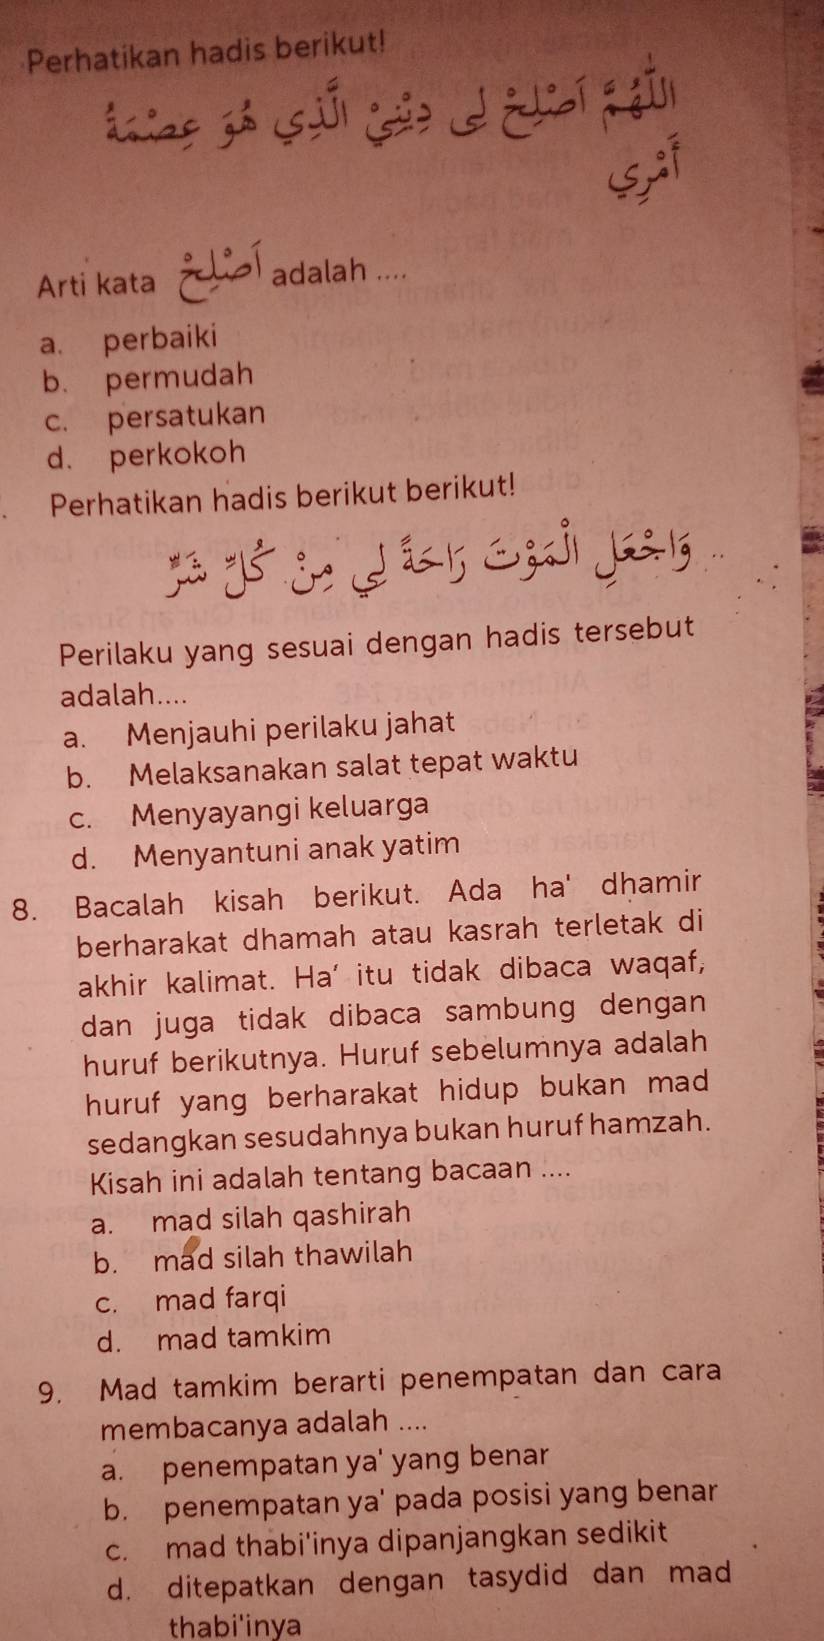 Perhatikan hadis berikut!
اَللّٰهُمَّ أَصْلِحْ لِى دِيْنِيْ الَّذِي هُوَ عِصْمَةُ
أَمْرِي
Arti kata أَصْلِحْ adalah ....
a. perbaiki
b. permudah
c. persatukan
d. perkokoh
. Perhatikan hadis berikut berikut!
.. وَاجْعَلْ الْمَوْتَ رَاحَةً لِي مِنْ كُلِّ شَرٍّ
Perilaku yang sesuai dengan hadis tersebut
adalah....
a. Menjauhi perilaku jahat
b. Melaksanakan salat tepat waktu
c. Menyayangi keluarga
d. Menyantuni anak yatim
8. Bacalah kisah berikut. Ada ha' dhamir
berharakat dhamah atau kasrah terletak di
akhir kalimat. Ha' itu tidak dibaca waqaf,
dan juga tidak dibaca sambung dengan
huruf berikutnya. Huruf sebelumnya adalah
huruf yang berharakat hidup bukan mad
sedangkan sesudahnya bukan huruf hamzah.
Kisah ini adalah tentang bacaan ....
a. mad silah qashirah
b. mad silah thawilah
c. mad farqi
d. mad tamkim
9. Mad tamkim berarti penempatan dan cara
membacanya adalah ....
a. penempatan ya' yang benar
b. penempatan ya' pada posisi yang benar
c. mad thabi'inya dipanjangkan sedikit
d. ditepatkan dengan tasydid dan mad
thabi'inya